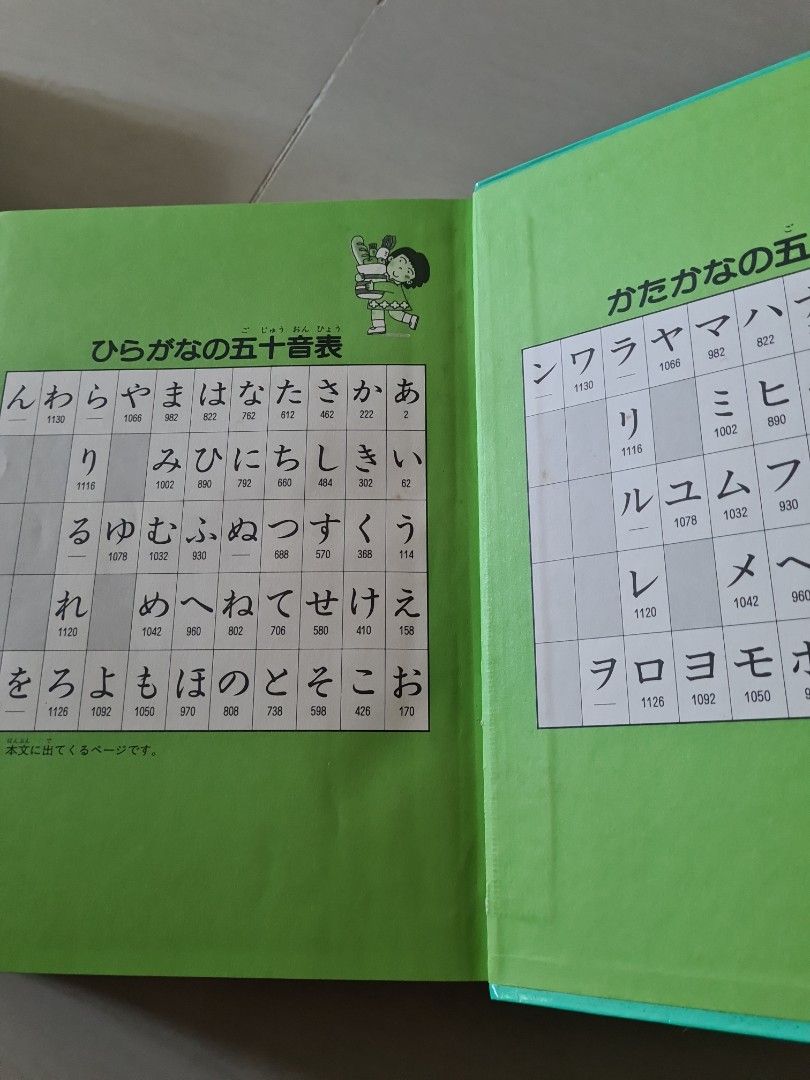 ひらがなの五十音表
ご じゅう おん ひょう
ん わ ら や ま は な た さ か あ
— 1130 — 1066 982 822 762 612 462 222 2
り み ひ に ち し き い
1116 1002 890 792 660 484 302 62
る ゆ む ふ ぬ つ す く う
— 1078 1032 930 — 688 570 368 114
れ め へ ね て せ け え
1120 1042 960 802 706 580 410 158
を ろ よ も ほ の と そ こ お
— 1126 1092 1050 970 808 738 598 426 170
ほんぶん で
本文に出てくるページです。
ご
かたかなの五
ン ワ ラ ヤ マ ハ
— 1130 — 1066 982 822
リ ミ ヒ
1116 1002 890
ル ユ ム フ
— 1078 1032 930
レ メ ヘ
1120 1042 960
ヲ ロ ヨ モ ホ
— 1126 1092 1050